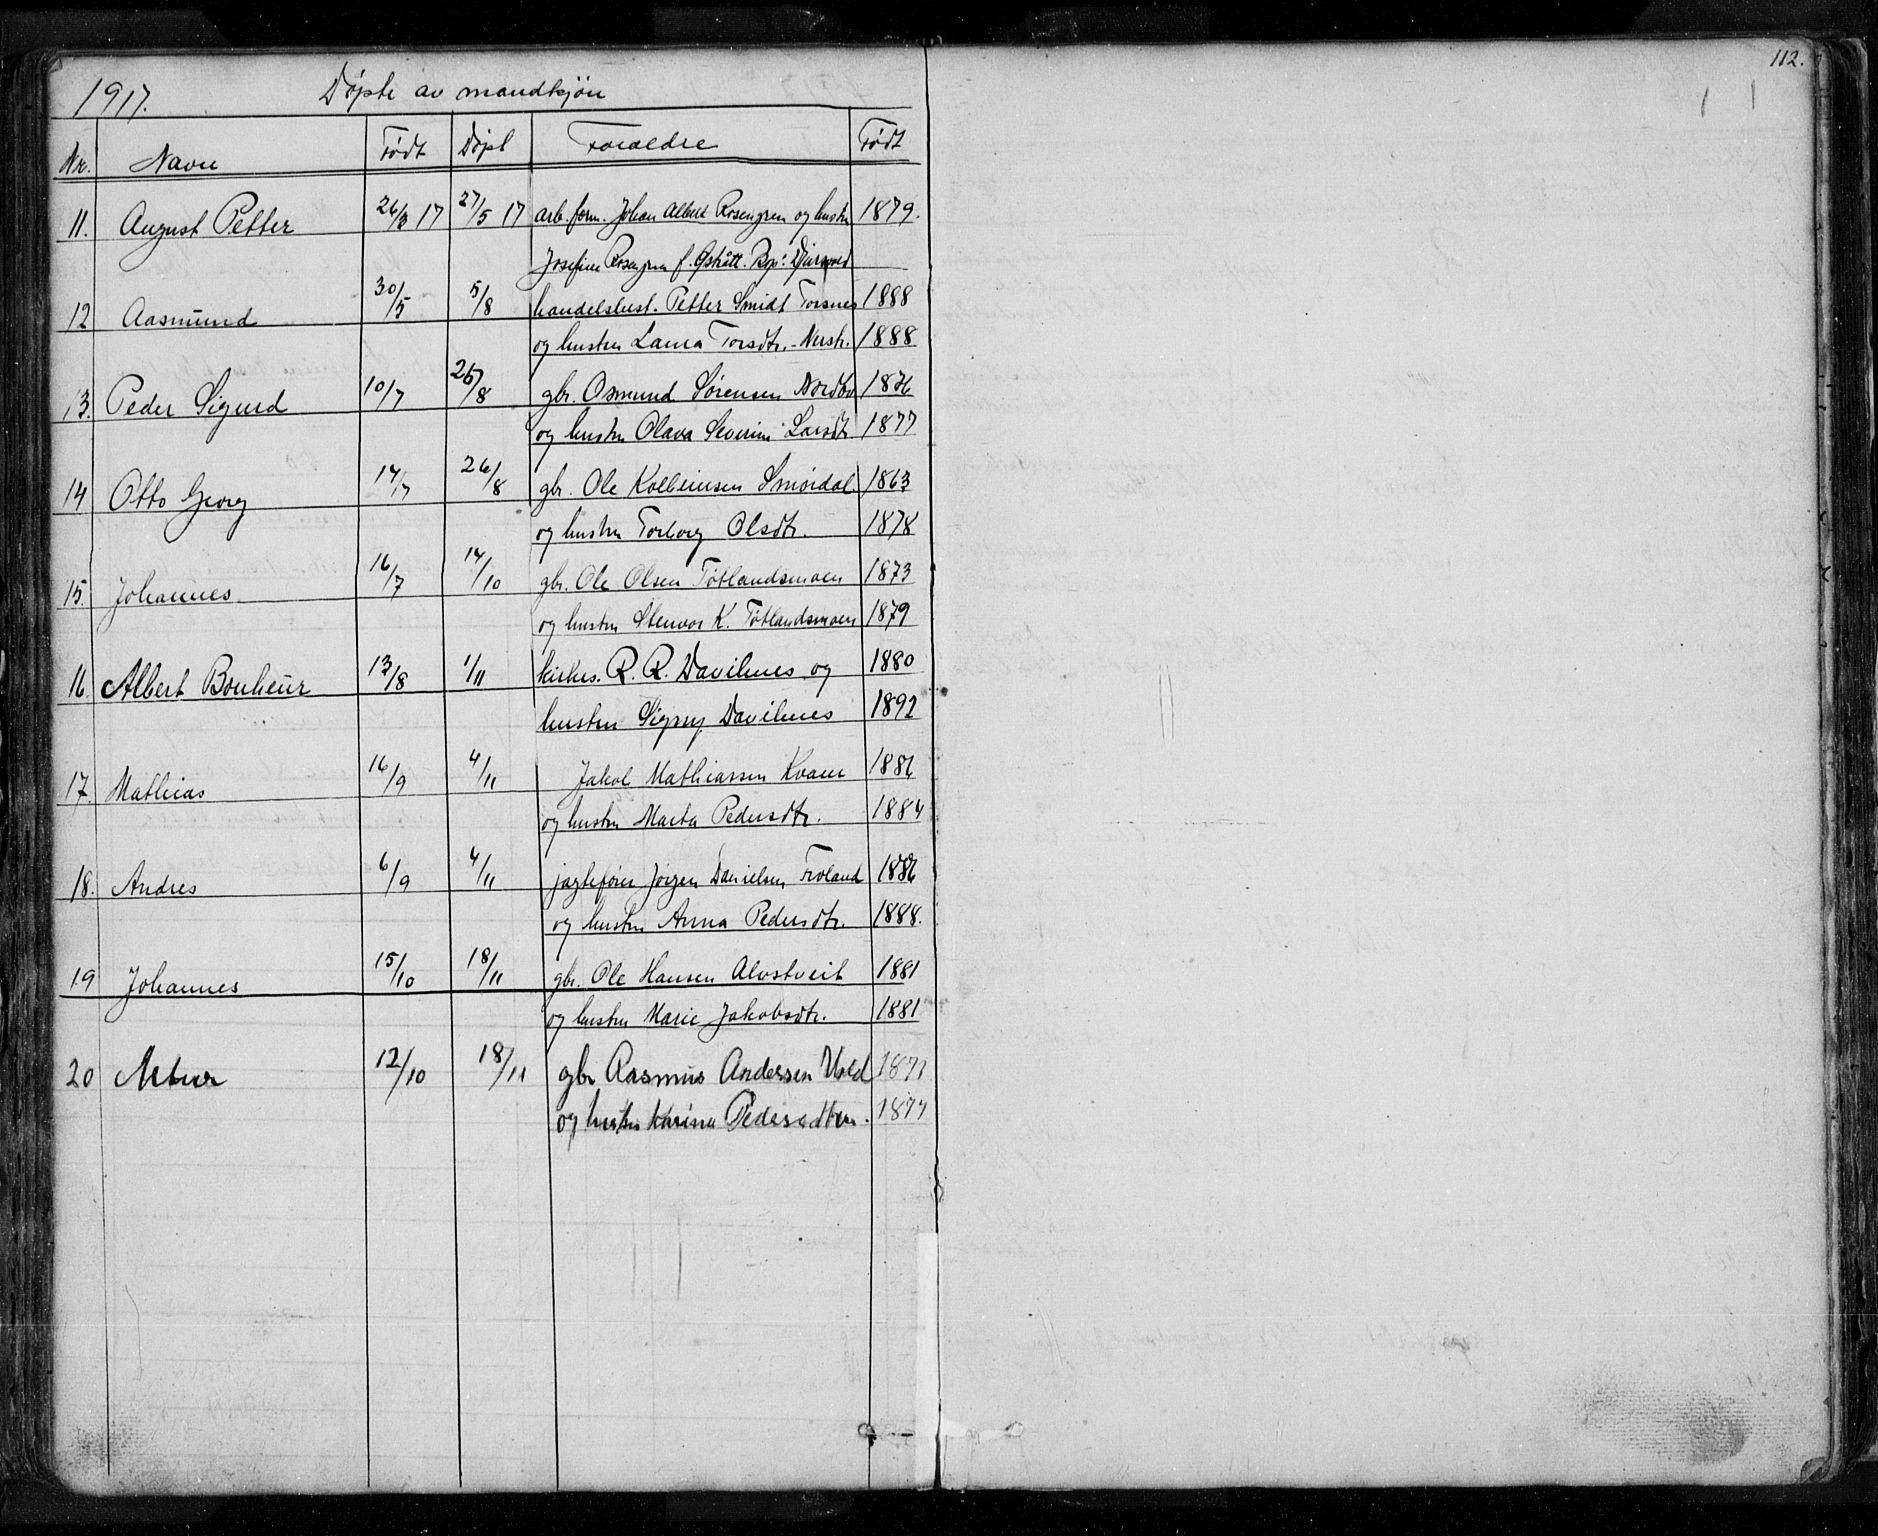 112.
1917. Døpte av mandkjøn
Nr. Navn Født Døpt Foraeldre Født
11. August Petter 26/3 17 27/5 17 arb. form. Johan Albert Rosengren og hustru 1879.
Josefine Rosengren f. Bop:
12 Aasmund 30/5 5/8 handelsbest. Petter Smidt Torsnes 1888
og hustru Laura Torsdtr. 1888
13. Peder Sigurd 10/7 26/8 gbr. Osmund Sørensen Nordbø 1876
og hustru Olava Severine Larsdtr. 1877
14 Otto Georg 14/7 26/8 gbr. Ole Kolbeinsen Smørdal 1863
og hustru Torborg Olsdtr. 1878
15. Johannes 16/7 14/10 gbr. Ole Olsen Tøtlandsmoen 1873
og hustru Stenvor K. Tøtlandsmoen 1879
16. Albert Bonheur 13/8 1/11 kirkes. R. R. Davihnes og 1880
hustru Signy Davihnes 1892
17. Mathias 16/9 4/11 Jakob Mathiassen Kvam 1886
og hustru Marta Pedersdtr. 1884
18. Andres 6/9 4/11 jagtefører Jørgen Danielsen Troland 1886
og hustru Anna Pedersdtr. 1888.
19 Johannes 15/10 18/11 gbr. Ole Hansen Alvstveit 1881
og hustru Marie Jakobsdtr. 1881
20 Artur 12/10 18/11 gbr Rasmus Andersen Vold
og hustru Karina Pedersdtter. 1877